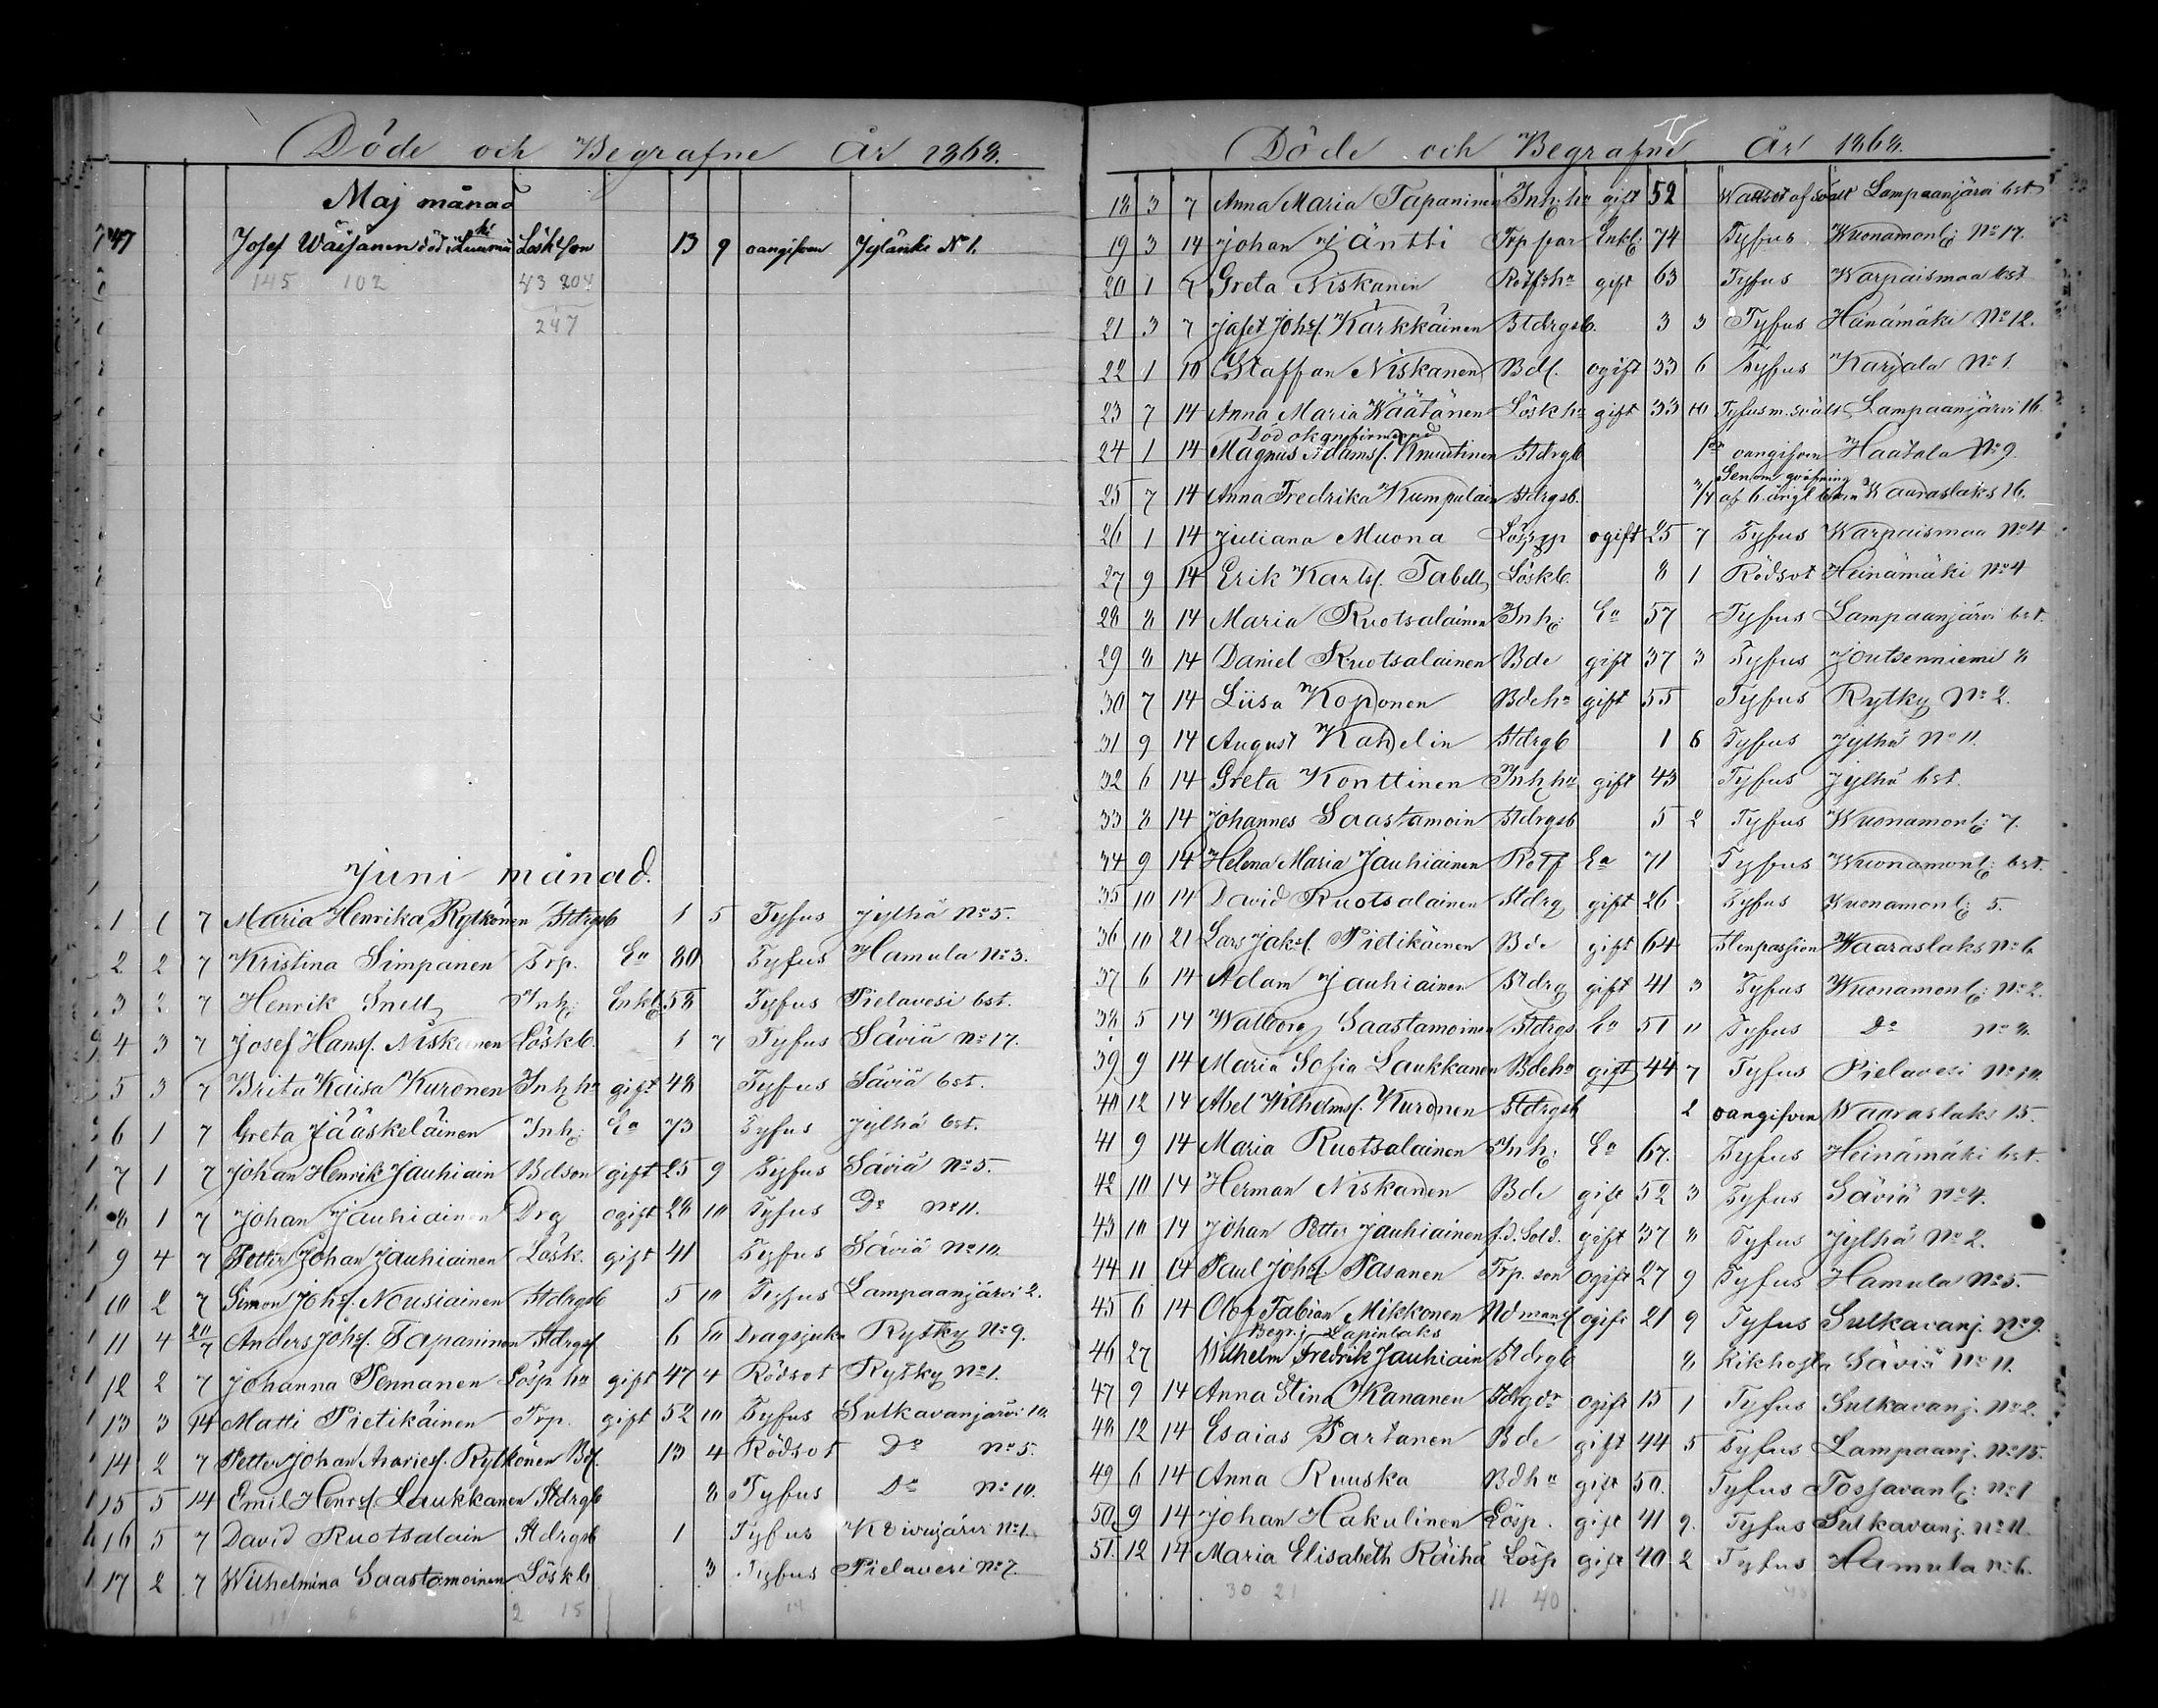 Döde och Begrafne År 1868.
Maj månad
247 Josef Wäisänen död i Löskson 13 9 oangifven Jylänki No 1.
145 102 43 204
247
Juni månad.
1 1 7 Maria Henrika Rytkönen Stdrgsb 1 5 Tyfus Jylhä No 5.
2 2 7 Kristina Simpanen Trp. Ea 80 Tyfus Hamula No 3.
3 2 7 Henrik Snell Inh: Enkl: 58 Tyfus Pielavesi bst.
4 3 7 Josef Hanss. Niskanen Löskb. 1 7 Tyfus Säviä No 17.
5 3 7 Brita Kaisa Kuronen Inh hu gift 48 Tyfus Säviä bst.
6 1 7 Greta Jääskeläinen Inh: Ea 73 Tyfus Jylhä bst.
7 1 7 Johan Henrik Jauhiain Bdson gift 25 9 Tyfus Säviä No 5.
8 1 7 Johan Jauhiainen Drg ogift 28 10 Tyfus Do No 11.
9 4 7 Petter Johan Jauhiainen Lösk. gift 41 Tyfus Säviä No 10.
10 2 7 Simon Johs. Nousiainen Stdrgsb 5 10 Tyfus Lampaanjärvi 2.
11 4 20/7 Anders Johs. Tapaninen Stdrgs 6 10 Dragsjuka Rytky No 9.
12 2 7 Johanna Pennanen Lösp hu gift 47 4 Rödsot Rytky No 1.
13 3 14 Matti Pietikäinen Trp. gift 52 10 Tyfus Sulkavanjärvi 10.
14 2 7 Petter Johan Rytkönen Bds. 13 4 Rödsot Do No 5.
15 5 14 Emil Henrs. Laukkanen Stdrgb 8 Tyfus Do No 10.
16 5 7 David Ruotsalain Stdrgsb 1 Tyfus Koivujärvi No 1.
17 2 7 Wilhelmina Saastamoinen Löskb 3 Tyfus Pielavesi No 7.
2 15
Döde och Begrafne År 1868.
18 3 7 Anna Maria Tapaninen Inh: hu gift 52 Wattsot af svält Lampaanjärvi bst
19 3 14 Johan Jäntti Trp far Enkl: 74 Tyfus Wuonamonl: No 17.
20 1 7 Greta Niskanen Rotfshu gift 63 Tyfus Warpaismaa bst
21 3 7 Jafet Johs. Kärkkäinen Stdrgsb. 3 3 Tyfus Heinämäki No 12.
22 1 10 Staffan Niskanen Bds. ogift 33 6 Tyfus Karjala No 1.
23 7 14 Anna Maria Wäätänen Löskhu gift 33 10 Tyfus m. svält Lampaanjärvi 16.
Död okonfirmerad
24 1 14 Magnus Adamss. Knuutinen Stdrgb oangifven Haatala No 9.
Genom qväfning
25 7 14 Anna Fredrika Kumpulain Stdrgsb. 3/4 af 6 årigt barn Waaraslaks 26.
26 1 14 Juliana Muona Löspp ogift 25 7 Tyfus Warpaismaa No 4
27 9 14 Erik Karls. Tabell Löskb. 8 1 Rödsot Heinämäki No 4
28 8 14 Maria Ruotsalainen Inh: Ea 57 Tyfus Lampaanjärvi bst.
29 8 14 Daniel Ruotsalainen Bde gift 37 3 Tyfus Joutsenniemi 8
30 7 14 Liisa Koponen Bdehu gift 55 Tyfus Rytky No 2.
31 9 14 August Kahelin Stdrgb 1 6 Tyfus Jylhä No 11.
32 6 14 Greta Konttinen Inh hu gift 43 Tyfus Jylhä bst.
33 8 14 Johannes Saastamoin Stdrgsb 5 2 Tyfus Wuonamonl: 7.
34 9 14 Helena Maria Jauhiainen Rotf Ea 71 Tyfus Wuonamonl: bst.
35 10 14 David Ruotsalainen Stdrg gift 26 Tyfus Wuonamonl: 5.
36 10 21 Lars Jaks. Pietikäinen Bde gift 64 Stenpassion Waaraslaks No 6.
37 6 14 Adam Jauhiainen Stdrg gift 41 3 Tyfus Wuonamonl: No 2.
38 5 14 Walborg Saastamoinen Stdrgs Ea 51 11 Tyfus Do No 3.
39 9 14 Maria Sofia Laukkanen Bdehu gift 44 7 Tyfus Pielavesi No 10.
40 12 14 Abel Wilhelms. Kuronen Stdrgsb 2 oangifven Waaraslaks 15.
41 9 14 Maria Ruotsalainen Inh: Ea 67. Tyfus Heinämäki bst.
42 10 14 Herman Niskanen Bde gift 52 3 Tyfus Säviä No 4.
43 10 14 Johan Petter Jauhiainen f.d. Sold. gift 37 8 Tyfus Jylhä No 2.
44 11 14 Paul Johs Pasanen Trp. son ogift 27 9 Tyfus Hamula No 5.
45 6 14 Olof Fabian Mikkonen Ndmans ogift 21 9 Tyfus Sulkavanj. No 9.
Begr. i Lapinlaks
46 27 Wilhelm Fredrik Jauhiain Stdrgb 8 Kikhosta Säviä No 11.
47 9 14 Anna Stina Kananen Stdrgdr ogift 15 1 Tyfus Sulkavanj. No 2.
48 12 14 Esaias Partanen Bde gift 44 5 Tyfus Lampaanj. No 15.
49 6 14 Anna Ruuska Bdhu gift 50. Tyfus Tossavanl: No 1
50 9 14 Johan Hakulinen Lösp. gift 41 9. Tyfus Sulkavanj. No 11.
51. 12 14 Maria Elisabeth Räihä Lösp gift 40 2 Tyfus Hamula No 6.
30 21 11 40